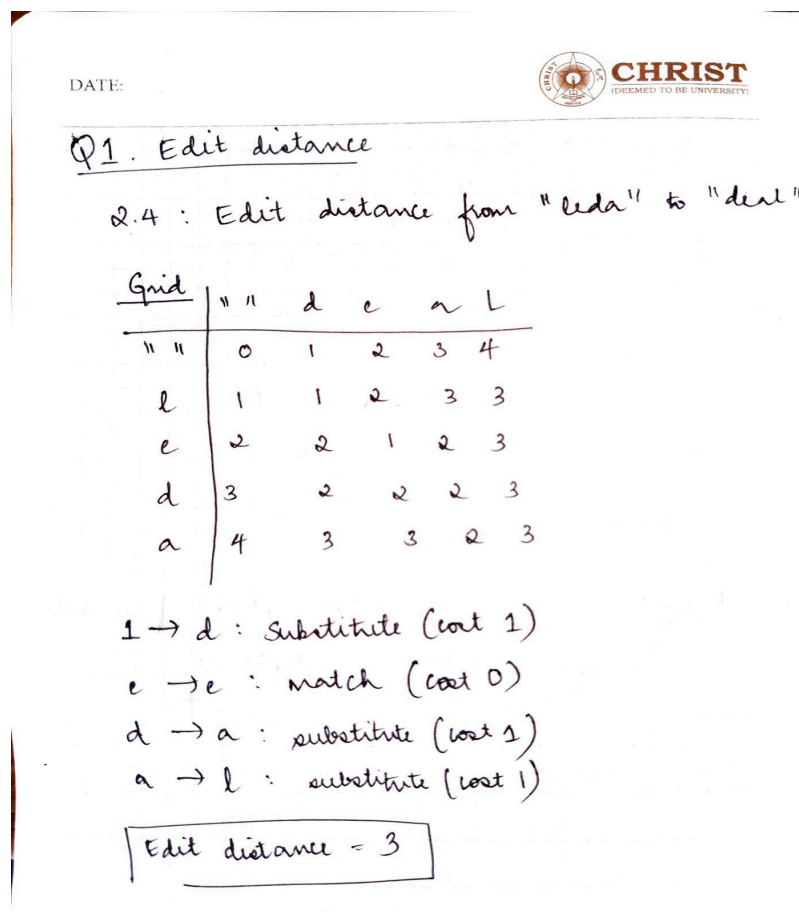 DATE:
CHRIST
(DEEMED TO BE UNIVERSITY)
Q1. Edit distance
2.4 : Edit distance from "leda" to "deal"
Grid " " d e a L
" " 0 1 2 3 4
l 1 1 2 3 3
e 2 2 1 2 3
d 3 2 2 2 3
a 4 3 3 2 3
1 → d : Substitute (cost 1)
e → e : match (cost 0)
d → a : substitute (cost 1)
a → l : substitute (cost 1)
Edit distance = 3